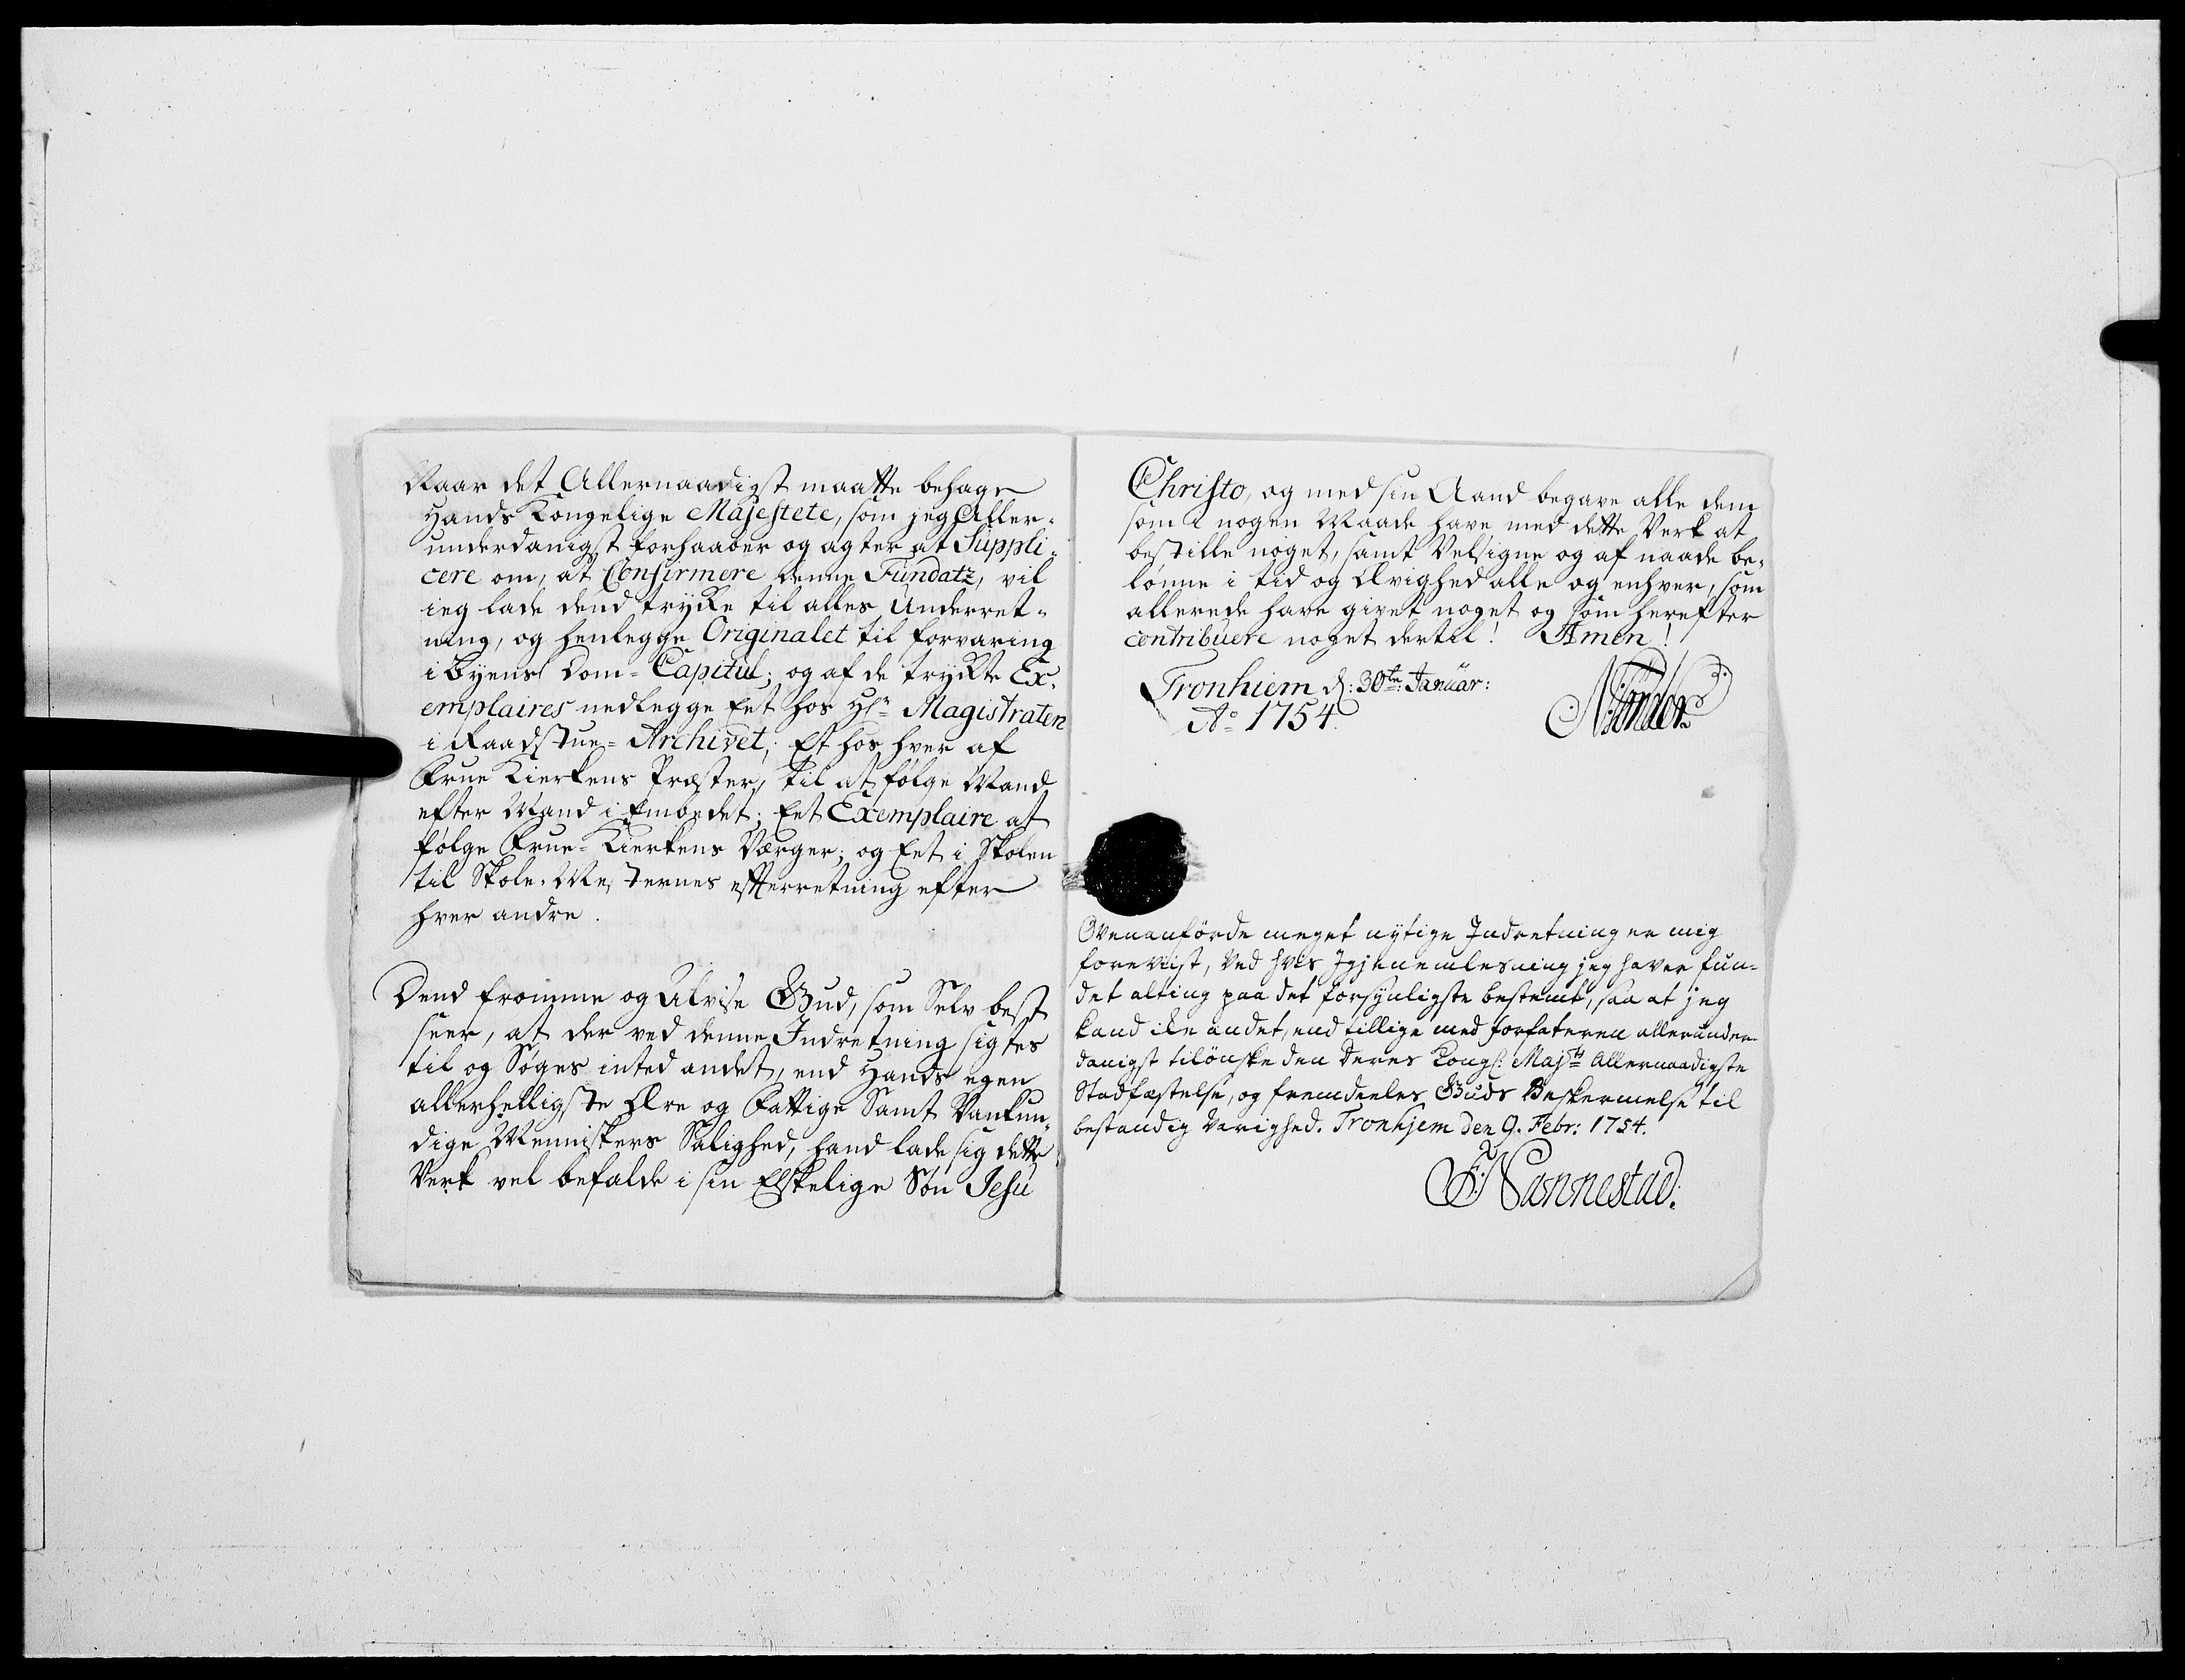 Naar det Allernaadigst maatte behage
Hands Kongelige Majestete, som jeg Aller-
underdanigst forhaaber og agter at Suppli-
cere om, at Confirmere denne Fundatz, vil
ieg lade dend trykke til alles Underret-
ning, og henlegge Originalet til forvaring
i Byens Dom-Capitul; og af de trykte Ex-
emplaires nedlegge Eet hos Hr: Magistraten
i Raadstue-Archivet; Et hos hver af
Frue Kierkens Præster, til at følge Mand
efter Mand i Embedet; Eet Exemplaire at
følge Frue-Kierkens Værger; og Eet i Skolen
til Skole-Mesternes efterretning efter
hver andre.
Dend fromme og Alvise Gud, som Selv best
seer, at der ved denne Indretning sigtes
til og Søges inted andet, end Hands egen
allerhelligste Ære og Fattige Samt Vankun-
dige Menniskers Salighed, hand lade sig dette
Verk vel befalde i sin Elskelige Søn Jesu
Christo, og med sin Aand begave alle dem
som i nogen Maade have med dette Verk at
bestille noget, samt Velsigne og af naade be-
lønne i tid og Ævighed alle og enhver, som
allerede have givet noget og som herefter
contribuere noget dertil! Amen!
Tronhiem d: 30te: Januar:
Ao 1754.
Ovenanførde meget nytige Indretning er mig
foreviist, ved hvis Igjennemlesning jeg haver fun-
det alting paa det forsynligste bestemt, saa at jeg
kand ike andet, end tillige med forfateren allerunder-
danigst tilønske den Deres Kongl: Majts Allernaadigste
Stadfæstelse, og fremdeeles Guds Beskermelse til
bestandig Varighed. Tronhjem den 9. Febr: 1754.
F: Nannestad.